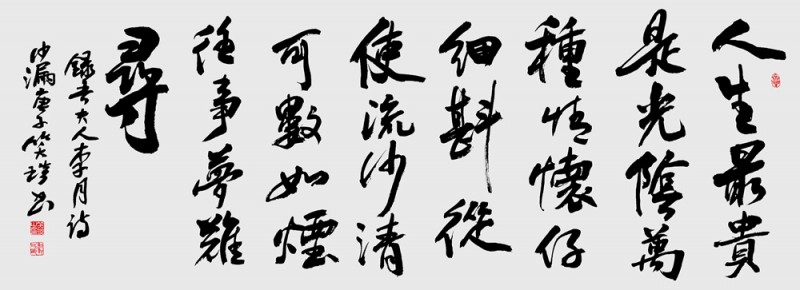 人生最貴
是光陰萬
種情懷仔
細斟從
使流沙清
可數如煙
往事夢難
尋
人李月詩
沙漏庚子笑